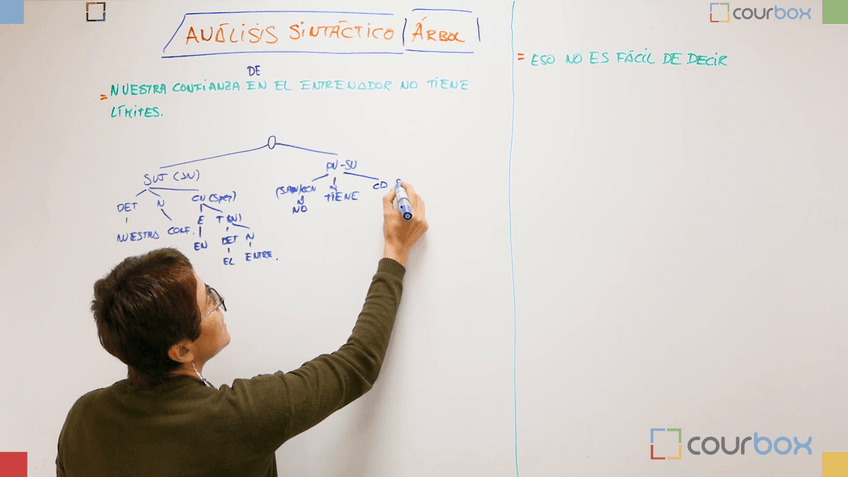 courbox
ANÁLISIS SINTÁCTICO ÁRBOL
DE
= NUESTRA CONFIANZA EN EL ENTRENADOR NO TIENE
LÍMITES.
= ESO NO ES FÁCIL DE DECIR
O
SUJ (SN) PV-SV
DET N CN (SPREP) (SADV) CCN TIENE CD
NUESTRA CONF. E T (SN) N NO
EN DET N
EL ENTRE.
courbox